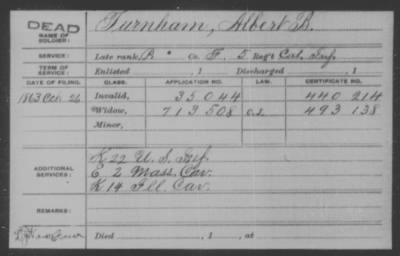 DEAD
NAME OF SOLDIER: Furnham, Albert B.
SERVICE: Late rank, P " Co. F, 5 Reg't Cal. Inf.
TERM OF SERVICE: Enlisted , 1 Discharged , 1
DATE OF FILING. CLASS. APPLICATION NO. LAW. CERTIFICATE NO.
1863 Oct. 26 Invalid, 35044 440 214
Widow, 713508 493 138
Minor,
ADDITIONAL SERVICES: K 22 U. S. Inf.
E 2 Mass. Cav.
K 14 Ill. Cav.
REMARKS:
Died , 1 , at